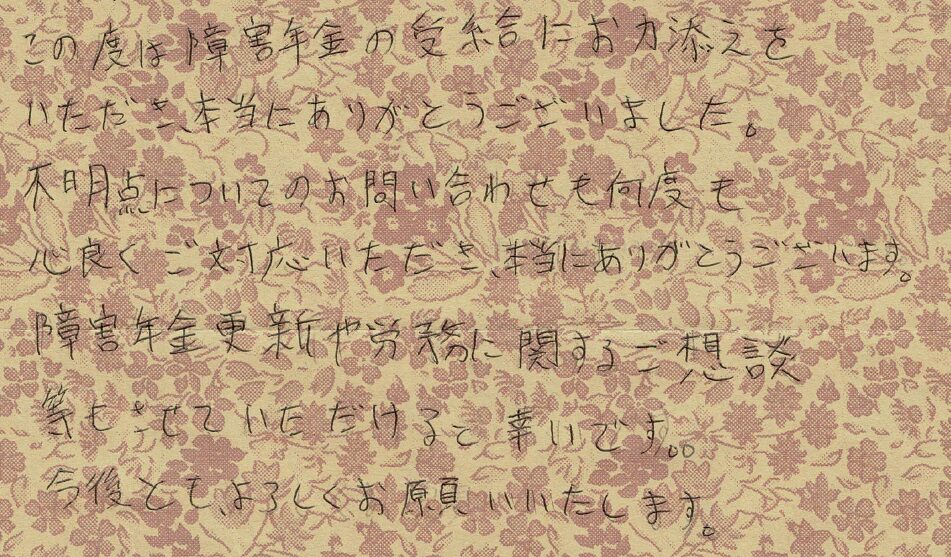 この度は障害年金の受給にお力添えを
いただき、本当にありがとうございました。
不明点についてのお問い合わせも何度も
心良くご対応いただき、本当にありがとうございます。
障害年金更新や労務に関するご想談
等もさせていただけると幸いです。。
今後とも、よろしくお願いいたします。